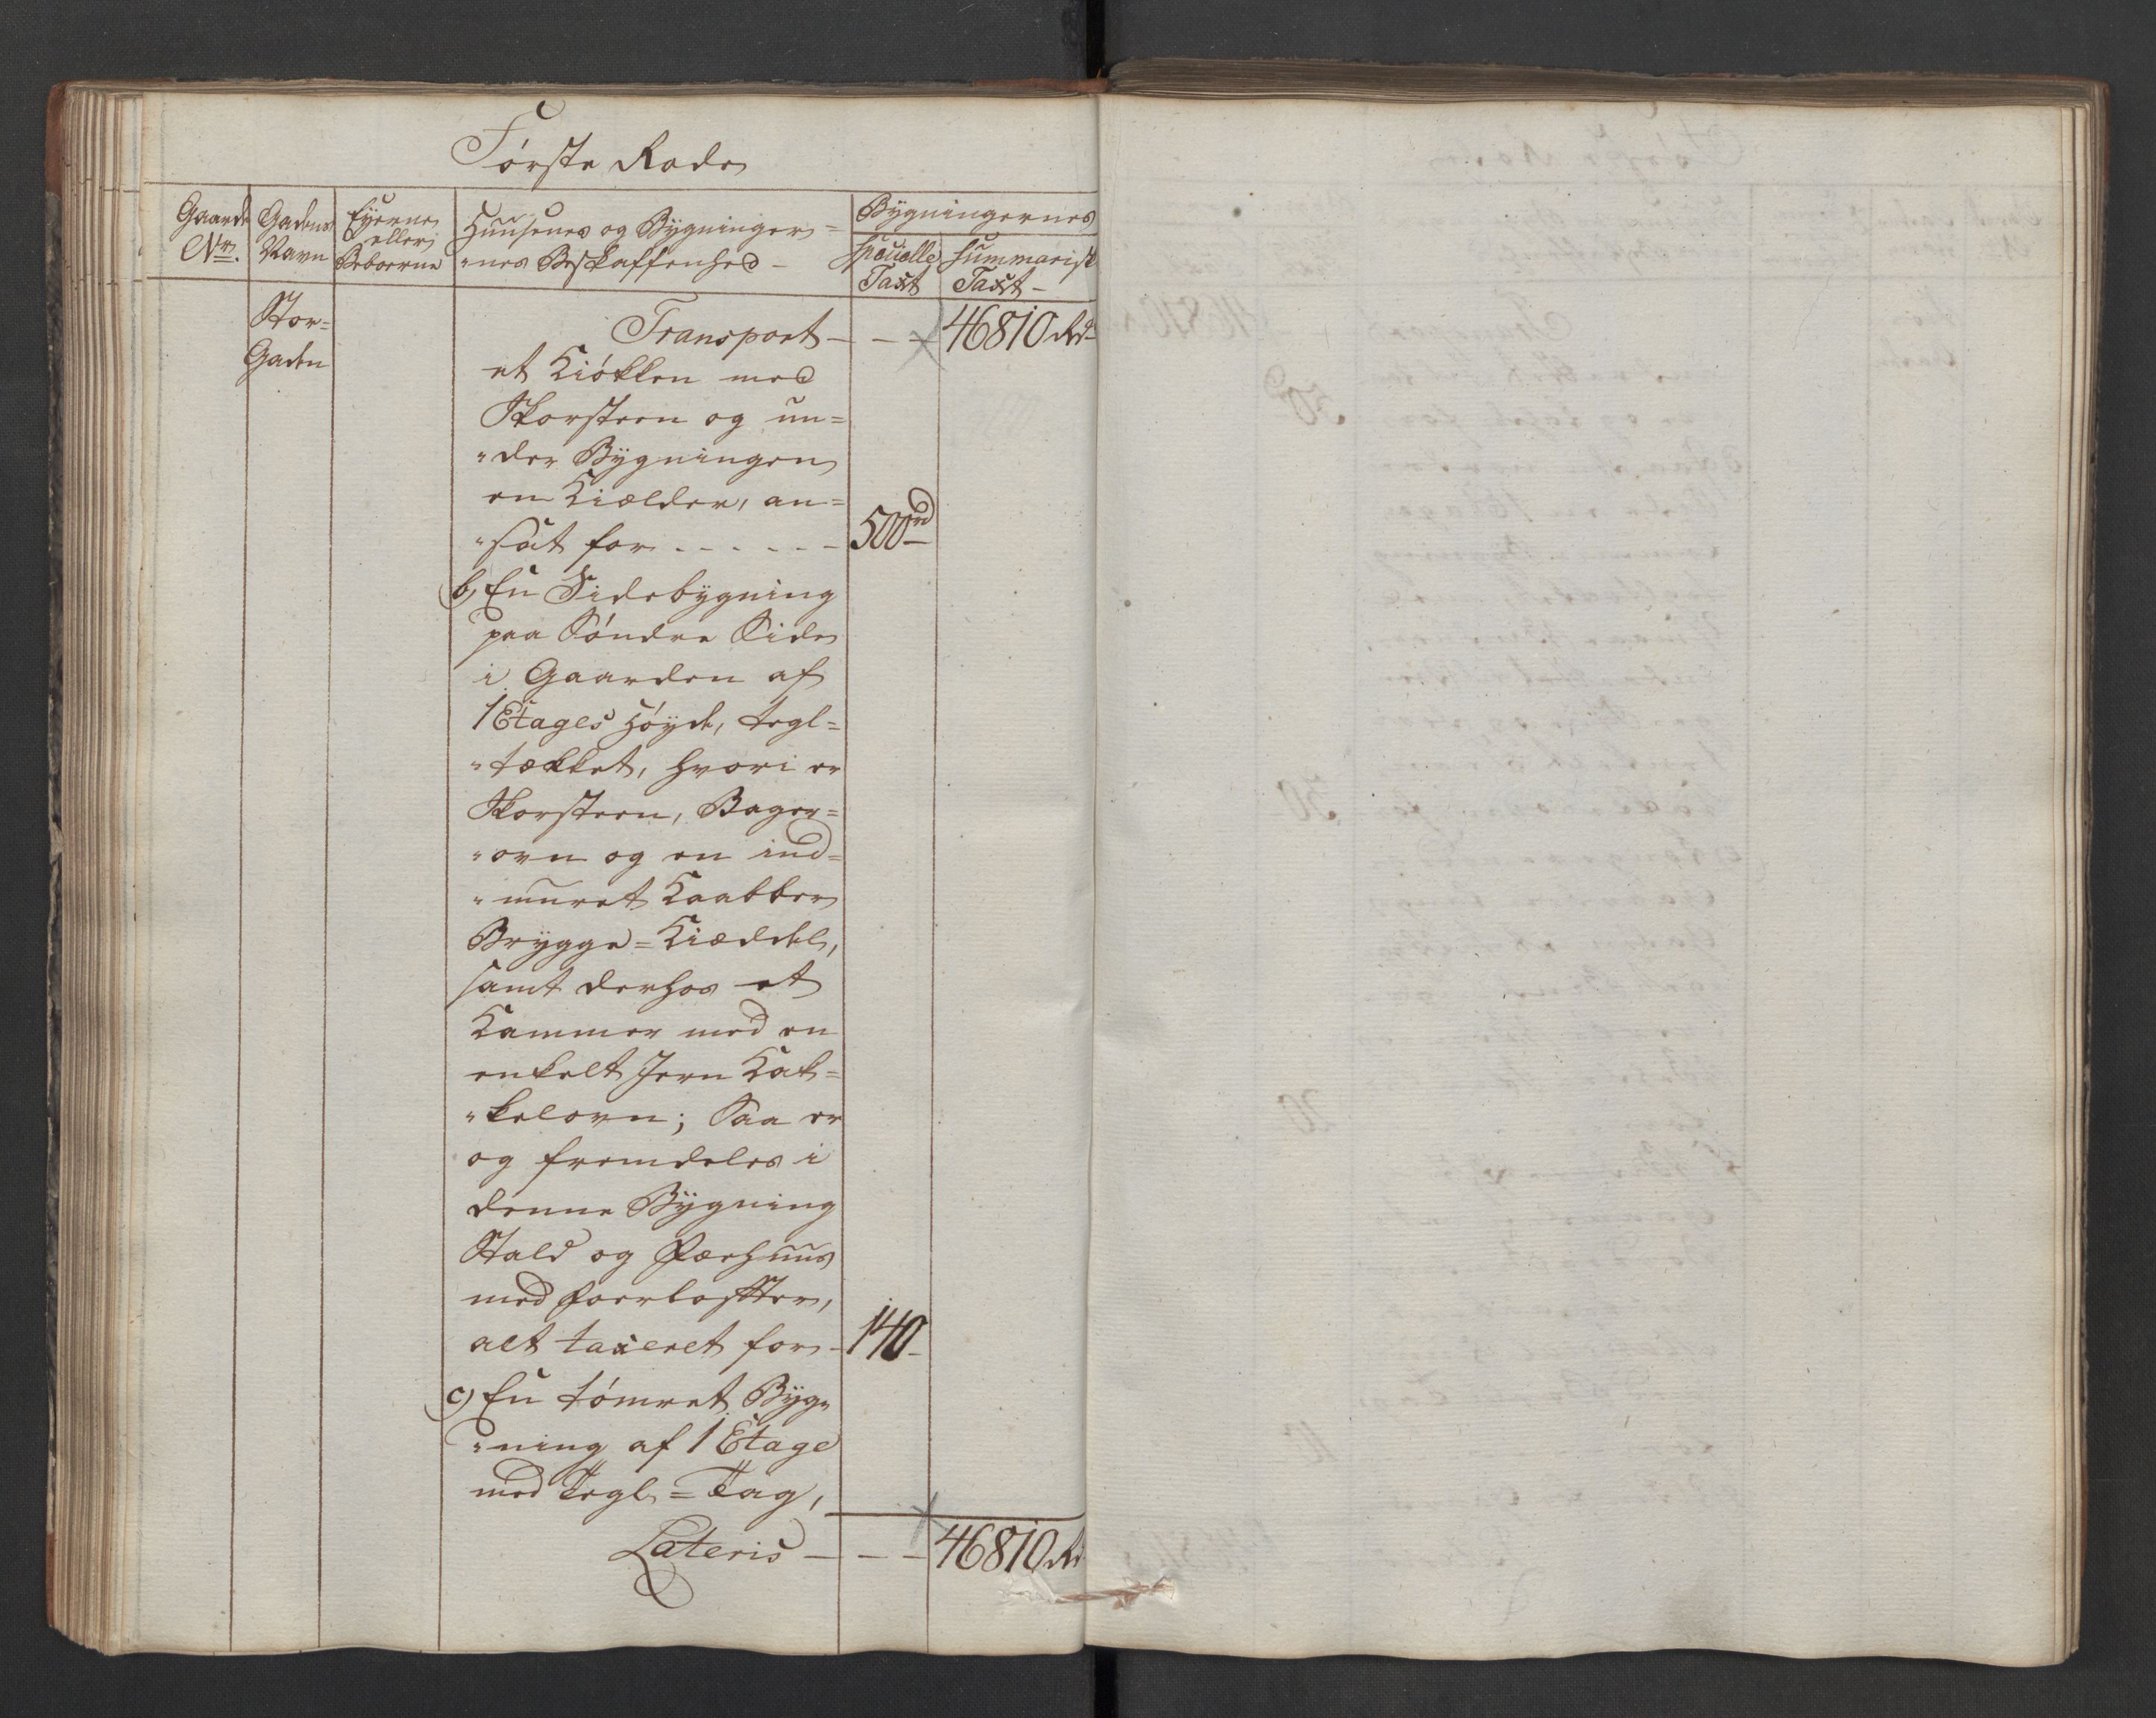 Første Rode
Gaarde Nr. Gadens Navn Eyerne eller Beboerne Huusenes og Bygninger= Bygningernes
"nes Beskaffenhed – Specielle Taxt Summarisk Taxt –
Stor= Transport – – – 46810 Rd
Gaden et Kiökken med
Skorsteen og un=
"der Bygningen
en Kiælder, an=
"sat for . - - - - - 500 rd
b, En Sidebygning
paa Søndre Side
i Gaarden af
1 Etages Höyde, tegl=
"tækket, hvori er
Skorsteen, Bager=
"ovn og en ind=
"muret Kaabber
Brygge=Kiæddel,
samt derhos et
Kammer med en
enkelt Jern Kak=
"kelovn; Saa er
og fremdeles i
denne Bygning
Stald og Færhuus
med Foerloffter,
alt taxeret for - 140 -
c) En tömret Byg=
"ning af 1 Etage
med Tegl=Tag,
Lateris – – – 46810 Rd